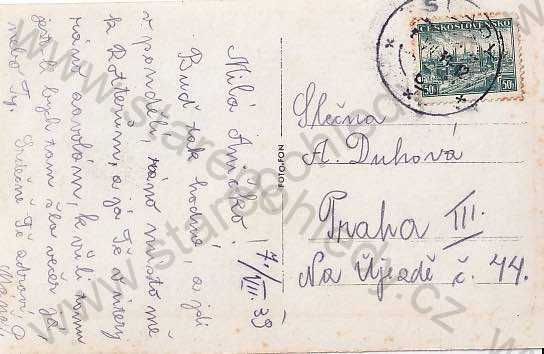 Milá Aničko!
7./VIII.39
Buď tak hodná, a jdi
v pondělí, ráno místo mě
k Rotterům, a já Tě v úterý
ráno zavolám, k vůli tomu
jestli bych tam šla večer já,
nebo Ty.
Srdečně Tě zdraví,
FOTO-FON
ČESKOSLOVENSKO
50h 50h
Slečna
A. Duhová
Praha III.
Na Újezdě č. 44.
www.staropohledy.cz